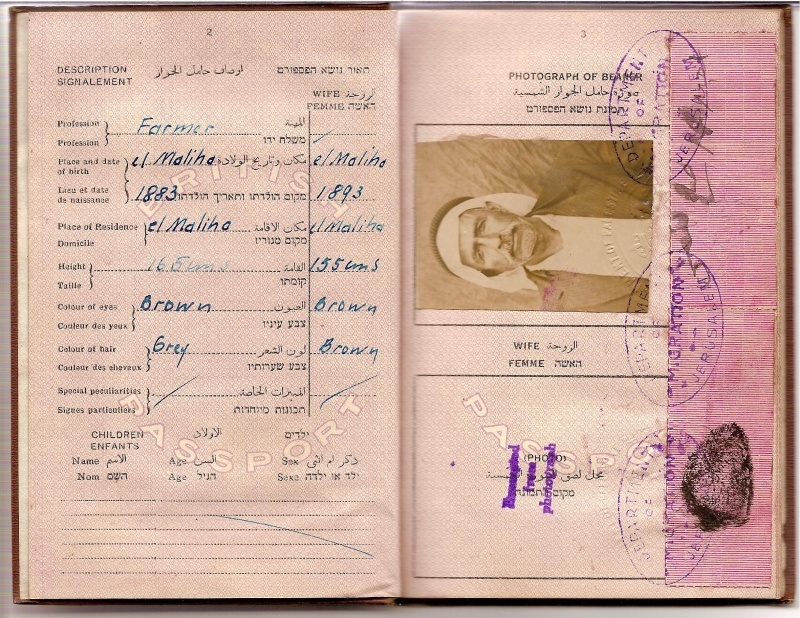 2
DESCRIPTION اوصاف حامل الجواز תאור נושא הפספורט
SIGNALEMENT
WIFE الزوجة
FEMME האשה
Profession Farmer المهنة
Profession משלח ידו
Place and date of birth el Maliha مكان وتاريخ الولادة el Maliha
Lieu et date de naissance 1883 מקום הולדתו ותאריך הולדתו 1893
Place of Residence el Maliha مكان الاقامة el Maliha
Domicile מקום מגוריו
Height 165 cms القامة 155 cms
Taille קומתו
Colour of eyes Brown العيون Brown
Couleur des yeux צבע עיניו
Colour of hair Grey لون الشعر Brown
Couleur des cheveux צבע שערותיו
Special peculiarities المميزات الخاصة
Signes particuliers תכונות מיוחדות
BRITISH
PASSPORT
CHILDREN الاولاد ילדים
ENFANTS
Name الاسم Age السن Sex ذكر ام انثى
Nom השם Age הגיל Sexe ילד או ילדה
3
PHOTOGRAPH OF BEARER
صورة حامل الجواز الشمسية
תמונת נושא הפספורט
WIFE الزوجة
FEMME האשה
PASSPORT
(PHOTO)
Exempted
from
photograph
מקום התמונה
DEPARTMENT OF MIGRATION JERUSALEM
DEPARTMENT OF MIGRATION JERUSALEM
DEPARTMENT OF MIGRATION